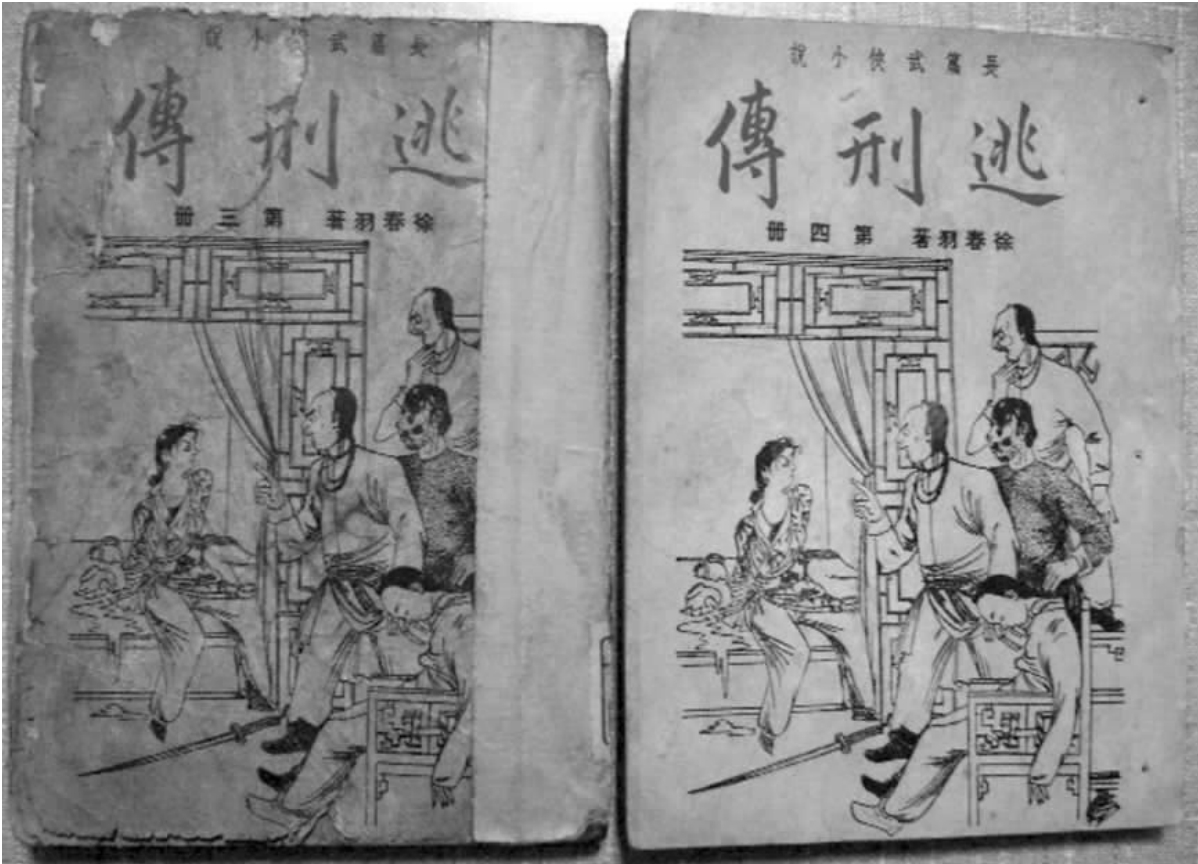 長篇武俠小說
逃刑傳
徐春羽著 第三冊
長篇武俠小說
逃刑傳
徐春羽著 第四冊